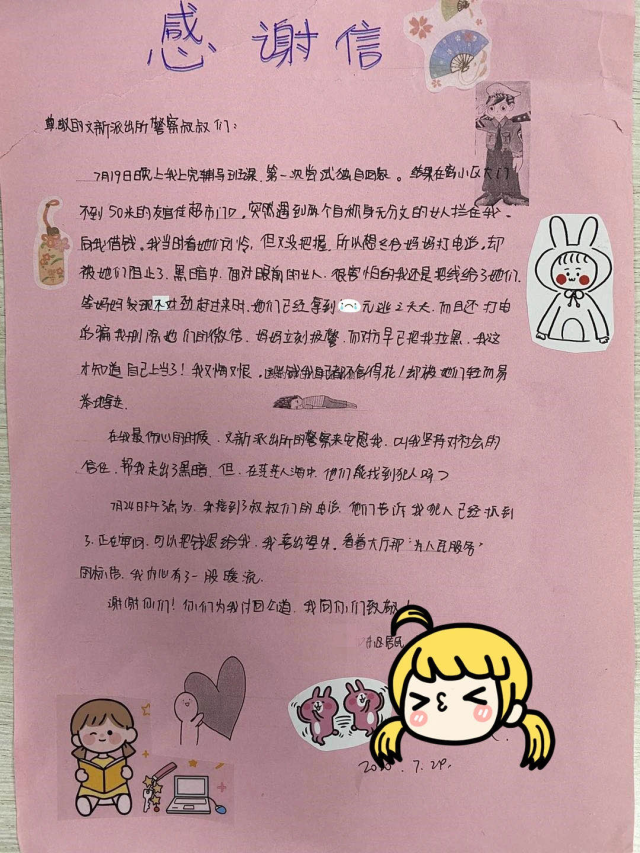 感谢信
尊敬的文新派出所警察叔叔们：
7月19日晚上我上完辅导班课，第一次尝试独自回家。结果在离小区大门
不到50米的友宜佳超市门口，突然遇到两个自称身无分文的女人拦住我，
向我借钱。我当时看她们可怜，但又没把握，所以想给妈妈打电话。却
被她们阻止了，黑暗中，面对眼前的女人，很害怕的我还是把钱给了她们。
等妈妈发现不对劲赶过来时，她们已经拿到 元逃之夭夭，而且还打电
话骗我删除她们的微信，妈妈立刻报警，而对方早已把我拉黑，我这
才知道自己上当了！我又悔又恨。这些钱我自己都不舍得花！却被她们轻而易
举地拿走。
在我最伤心的时候，文新派出所的警察来安慰我，叫我坚持对社会的
信任，帮我走出了黑暗，但，在茫茫人海中，他们能找到犯人吗？
7月24日下午3点，我接到了叔叔们的电话，他们告诉我犯人已经抓到
了，正在审问，可以把钱退给我，我喜出望外。看着大厅那"为人民服务"
的标语，我内心有了一股暖流。
谢谢你们！你们为我讨回公道，我向你们致敬！
居民
7.29.